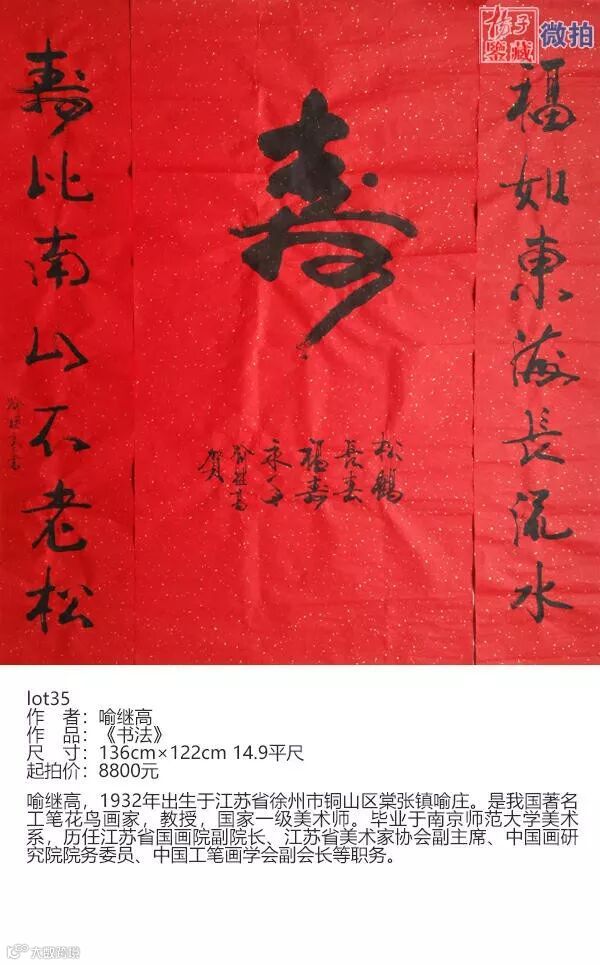 扬子
鉴藏
微拍
福如东海长流水
壽
松鶴
長春
福寿
永享
喻继高
贺
寿比南山不老松
喻继高书
lot35
作 者：喻继高
作 品：《书法》
尺 寸：136cm×122cm 14.9平尺
起拍价：8800元
喻继高，1932年出生于江苏省徐州市铜山区棠张镇喻庄。是我国著名
工笔花鸟画家，教授，国家一级美术师。毕业于南京师范大学美术
系，历任江苏省国画院副院长、江苏省美术家协会副主席、中国画研
究院院务委员、中国工笔画学会副会长等职务。
大数跨境